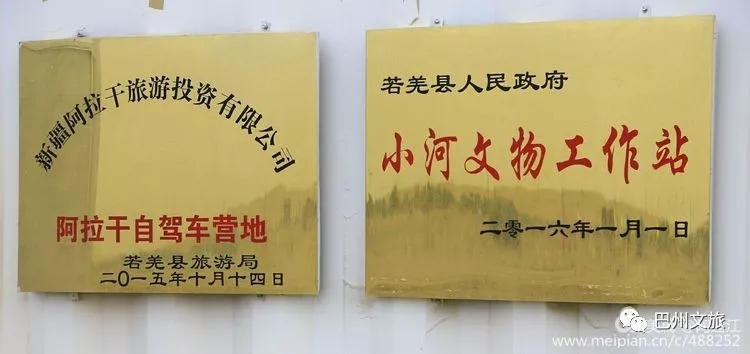 新疆阿拉干旅游投资有限公司
阿拉干自驾车营地
若羌县旅游局
二〇一五年十月十四日
若羌县人民政府
小河文物工作站
二零一六年一月一日
巴州文旅
www.meipian.cn/c/488252